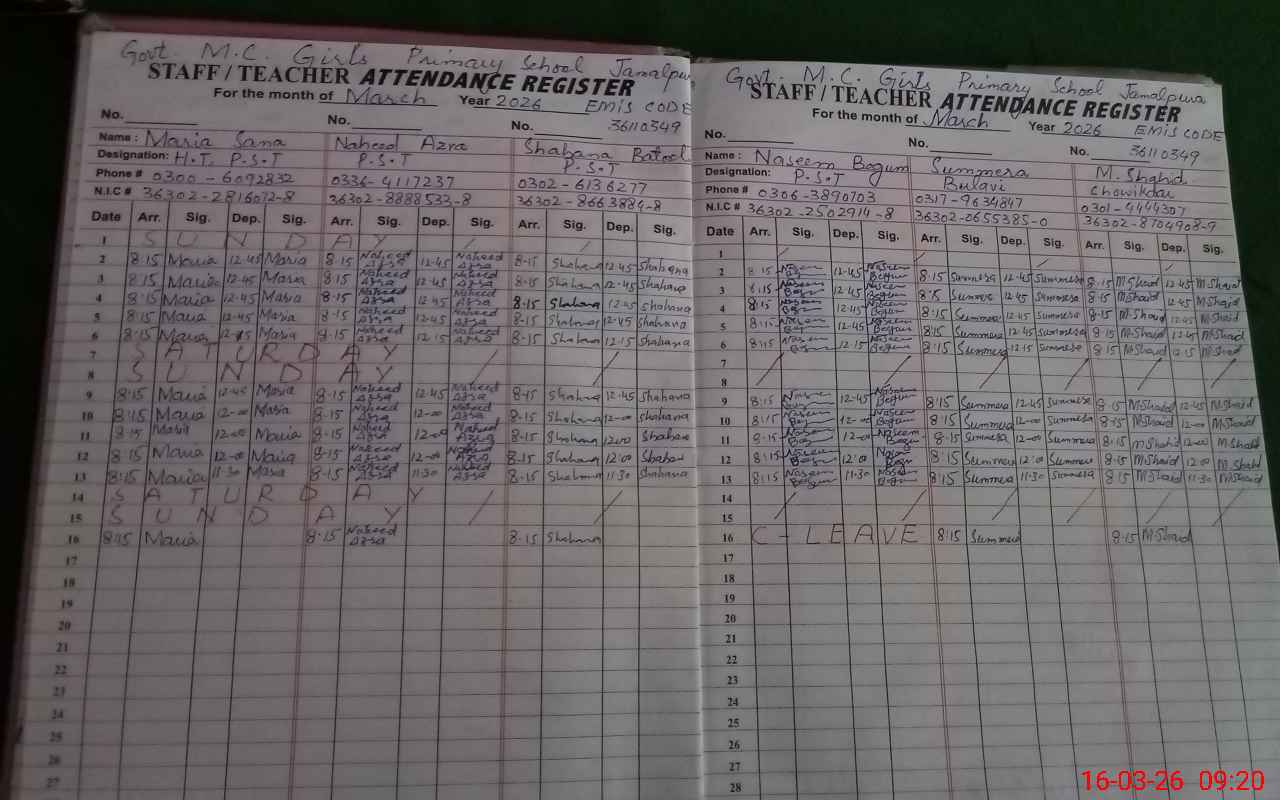 Govt. M.C. Girls Primary School Jamalpur
STAFF / TEACHER ATTENDANCE REGISTER
For the month of March Year 2026 EMIS CODE
No. No. No. 36110349
Name : Maria Sana Naheed Azra Shahana Batool
Designation: H.T. P.S.T P.S.T P.S.T
Phone # 0300-6092832 0336-4117237 0302-6136277
N.I.C # 36302-2816072-8 36302-8888532-8 36302-8663884-8
Date Arr. Sig. Dep. Sig. Arr. Sig. Dep. Sig. Arr. Sig. Dep. Sig.
1 SUNDAY
2 8:15 Maria 12-45 Maria 8-15 Naheed Azra 12-45 Naheed Azra 8-15 Shahana 12-45 Shahana
3 8:15 Maria 12-45 Maria 8-15 Naheed Azra 12-45 Naheed Azra 8-15 Shahana 12-45 Shahana
4 8:15 Maria 12-45 Maria 8-15 Naheed Azra 12-45 Naheed Azra 8-15 Shahana 12-45 Shahana
5 8:15 Maria 12-45 Maria 8-15 Naheed Azra 12-45 Naheed Azra 8-15 Shahana 12-45 Shahana
6 8:15 Maria 12-15 Maria 8-15 Naheed Azra 12-15 Naheed Azra 8-15 Shahana 12-15 Shahana
7 SATURDAY
8 SUNDAY
9 8:15 Maria 12-45 Maria 8-15 Naheed Azra 12-45 Naheed Azra 8-15 Shahana 12-45 Shahana
10 8:15 Maria 12-00 Maria 8-15 Naheed Azra 12-00 Naheed Azra 8-15 Shahana 12-00 Shahana
11 8:15 Maria 12-00 Maria 8-15 Naheed Azra 12-00 Naheed Azra 8-15 Shahana 12-00 Shahana
12 8:15 Maria 12-00 Maria 8-15 Naheed Azra 12-00 Naheed Azra 8-15 Shahana 12-00 Shahana
13 8:15 Maria 11-30 Maria 8-15 Naheed Azra 11-30 Naheed Azra 8-15 Shahana 11-30 Shahana
14 SATURDAY
15 SUNDAY
16 8:15 Maria 8-15 Naheed Azra 8-15 Shahana
17
18
19
20
21
22
23
24
25
26
27
Govt. M.C. Girls Primary School Jamalpura
STAFF / TEACHER ATTENDANCE REGISTER
For the month of March Year 2026 EMIS CODE
No. No. No. 36110349
Name : Naseem Begum Summera M.Shahid
Designation: P.S.T Bulavi Chowikdar
Phone # 0306-3890703 0317-9634847 0301-4444307
N.I.C # 36302-2502914-8 36302-0655385-0 36302-8704908-9
Date Arr. Sig. Dep. Sig. Arr. Sig. Dep. Sig. Arr. Sig. Dep. Sig.
1
2 8:15 Naseem Begum 12-45 Naseem Begum 8:15 Summera 12-45 Summera 8-15 M.Shaid 12-45 M.Shaid
3 8:15 Naseem Begum 12-45 Naseem Begum 8:15 Summera 12-45 Summera 8-15 M.Shaid 12-45 M.Shaid
4 8:15 Naseem Begum 12-45 Naseem Begum 8:15 Summera 12-45 Summera 8-15 M.Shaid 12-45 M.Shaid
5 8:15 Naseem Begum 12-45 Naseem Begum 8:15 Summera 12-45 Summera 8-15 M.Shaid 12-45 M.Shaid
6 8:15 Naseem Begum 12-15 Naseem Begum 8:15 Summera 12-15 Summera 8-15 M.Shaid 12-15 M.Shaid
7
8
9 8:15 Naseem 12-45 Naseem Begum 8-15 Summera 12-45 Summera 8-15 M.Shaid 12-45 M.Shaid
10 8:15 Naseem Begum 12-00 Naseem Begum 8-15 Summera 12-00 Summera 8-15 M.Shaid 12-00 M.Shaid
11 8:15 Naseem Begum 12-00 Naseem Begum 8-15 Summera 12-00 Summera 8-15 M.Shaid 12-00 M.Shaid
12 8:15 Naseem Begum 12-00 Naseem Begum 8-15 Summera 12-00 Summera 8-15 M.Shaid 12-00 M.Shaid
13 8:15 Naseem Begum 11-30 Naseem Begum 8-15 Summera 11-30 Summera 8-15 M.Shaid 11-30 M.Shaid
14
15
16 C-LEAVE 8:15 Summera 8-15 M.Shaid
17
18
19
20
21
22
23
24
25
26
27
28
16-03-26 09:20